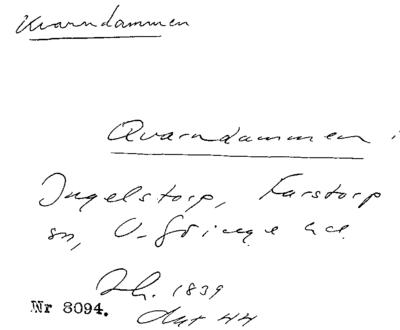 Kvarndammen
Qvarndammen i
Ingelstorp, Farstorp
sn, V. Göinge hd.
Lh. 1839
Akt 44
Nr 8094.